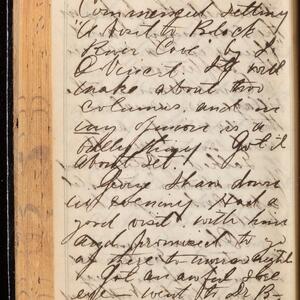 Commenced setting
"A Visit to Black
River Cove" by J.
Vincent. It will
make about two
columns, and in
my opinion is a
bully thing. Got it
about set.
George Shaw down
in evening. Had a
good visit with him
and promised to go
up there to-morrow night
Got an awful sore
eye — went to Dr B-